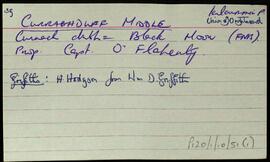 39
CURRAGHDUFF MIDDLE
Kilcummin P.
Currach dubh = Black Moor (FMS)
Prop Capt O'Flaherty
Griffiths: H Hodgson from Wm D. Griffith
P120/1/10/51(1)